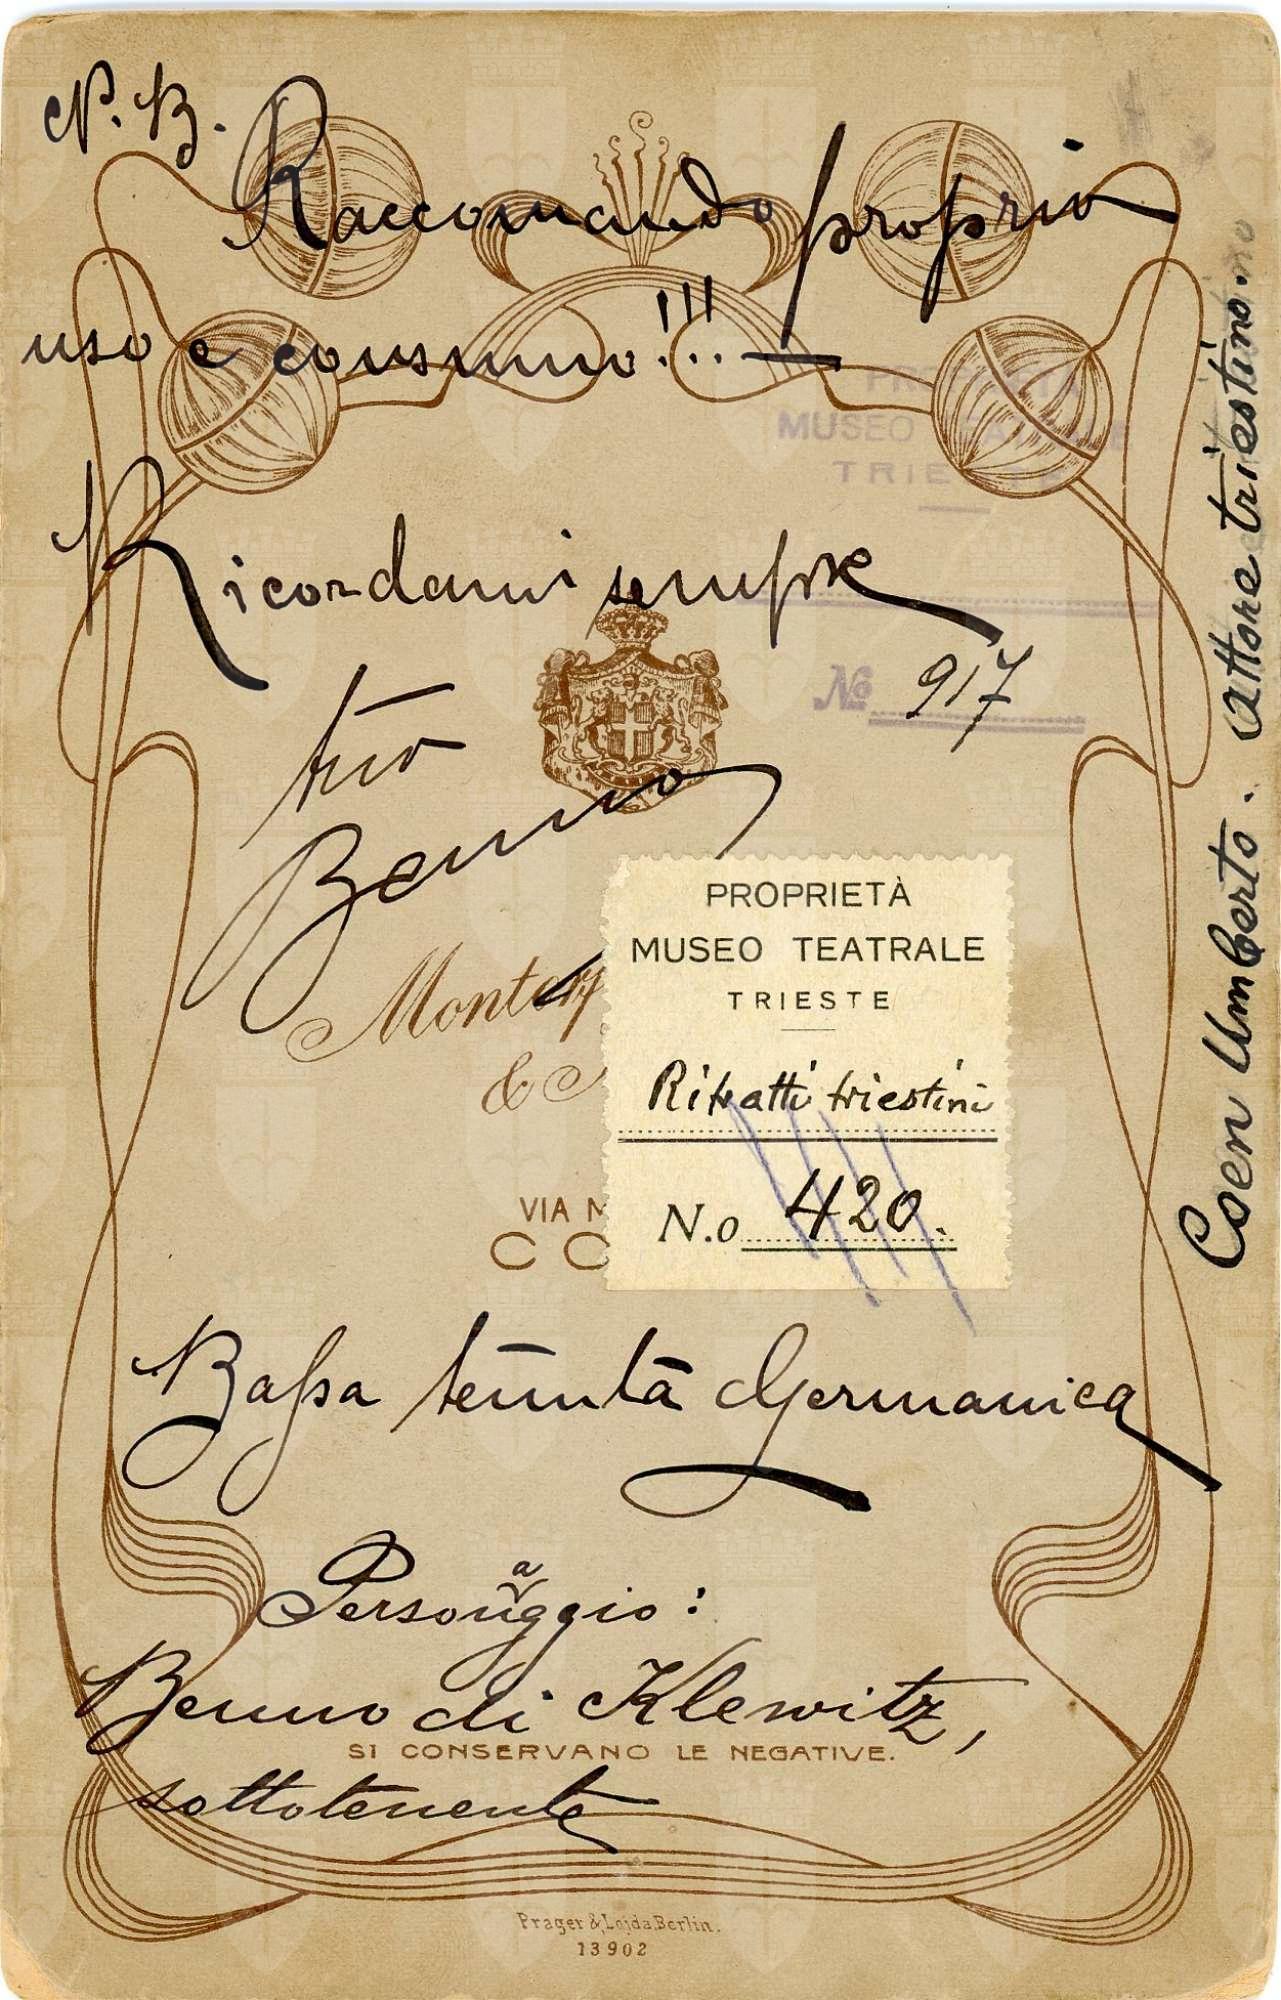 N. B.
Raccomando proprio
uso e consumo!!! —
PROPRIETÀ
MUSEO TEATRALE
TRIESTE
Ricordami sempre
No 917
tuo
Benno
Monter
&
PROPRIETÀ
MUSEO TEATRALE
TRIESTE
Ritratti triestini
N.o 420.
VIA M
CO
Bassa tenuta Germanica
Personaggio:
Benno di Klewitz,
SI CONSERVANO LE NEGATIVE.
sottotenente
Prager & Lojda, Berlin.
13902
Coen Umberto. attore triestino.